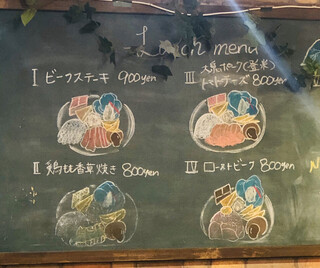 Lunch menu
I ビーフステーキ 900yen
III 大黒ポーク(釜米)
トマトチーズ 800yen
II 鶏もも香草焼き 800yen
IV ローストビーフ 800yen